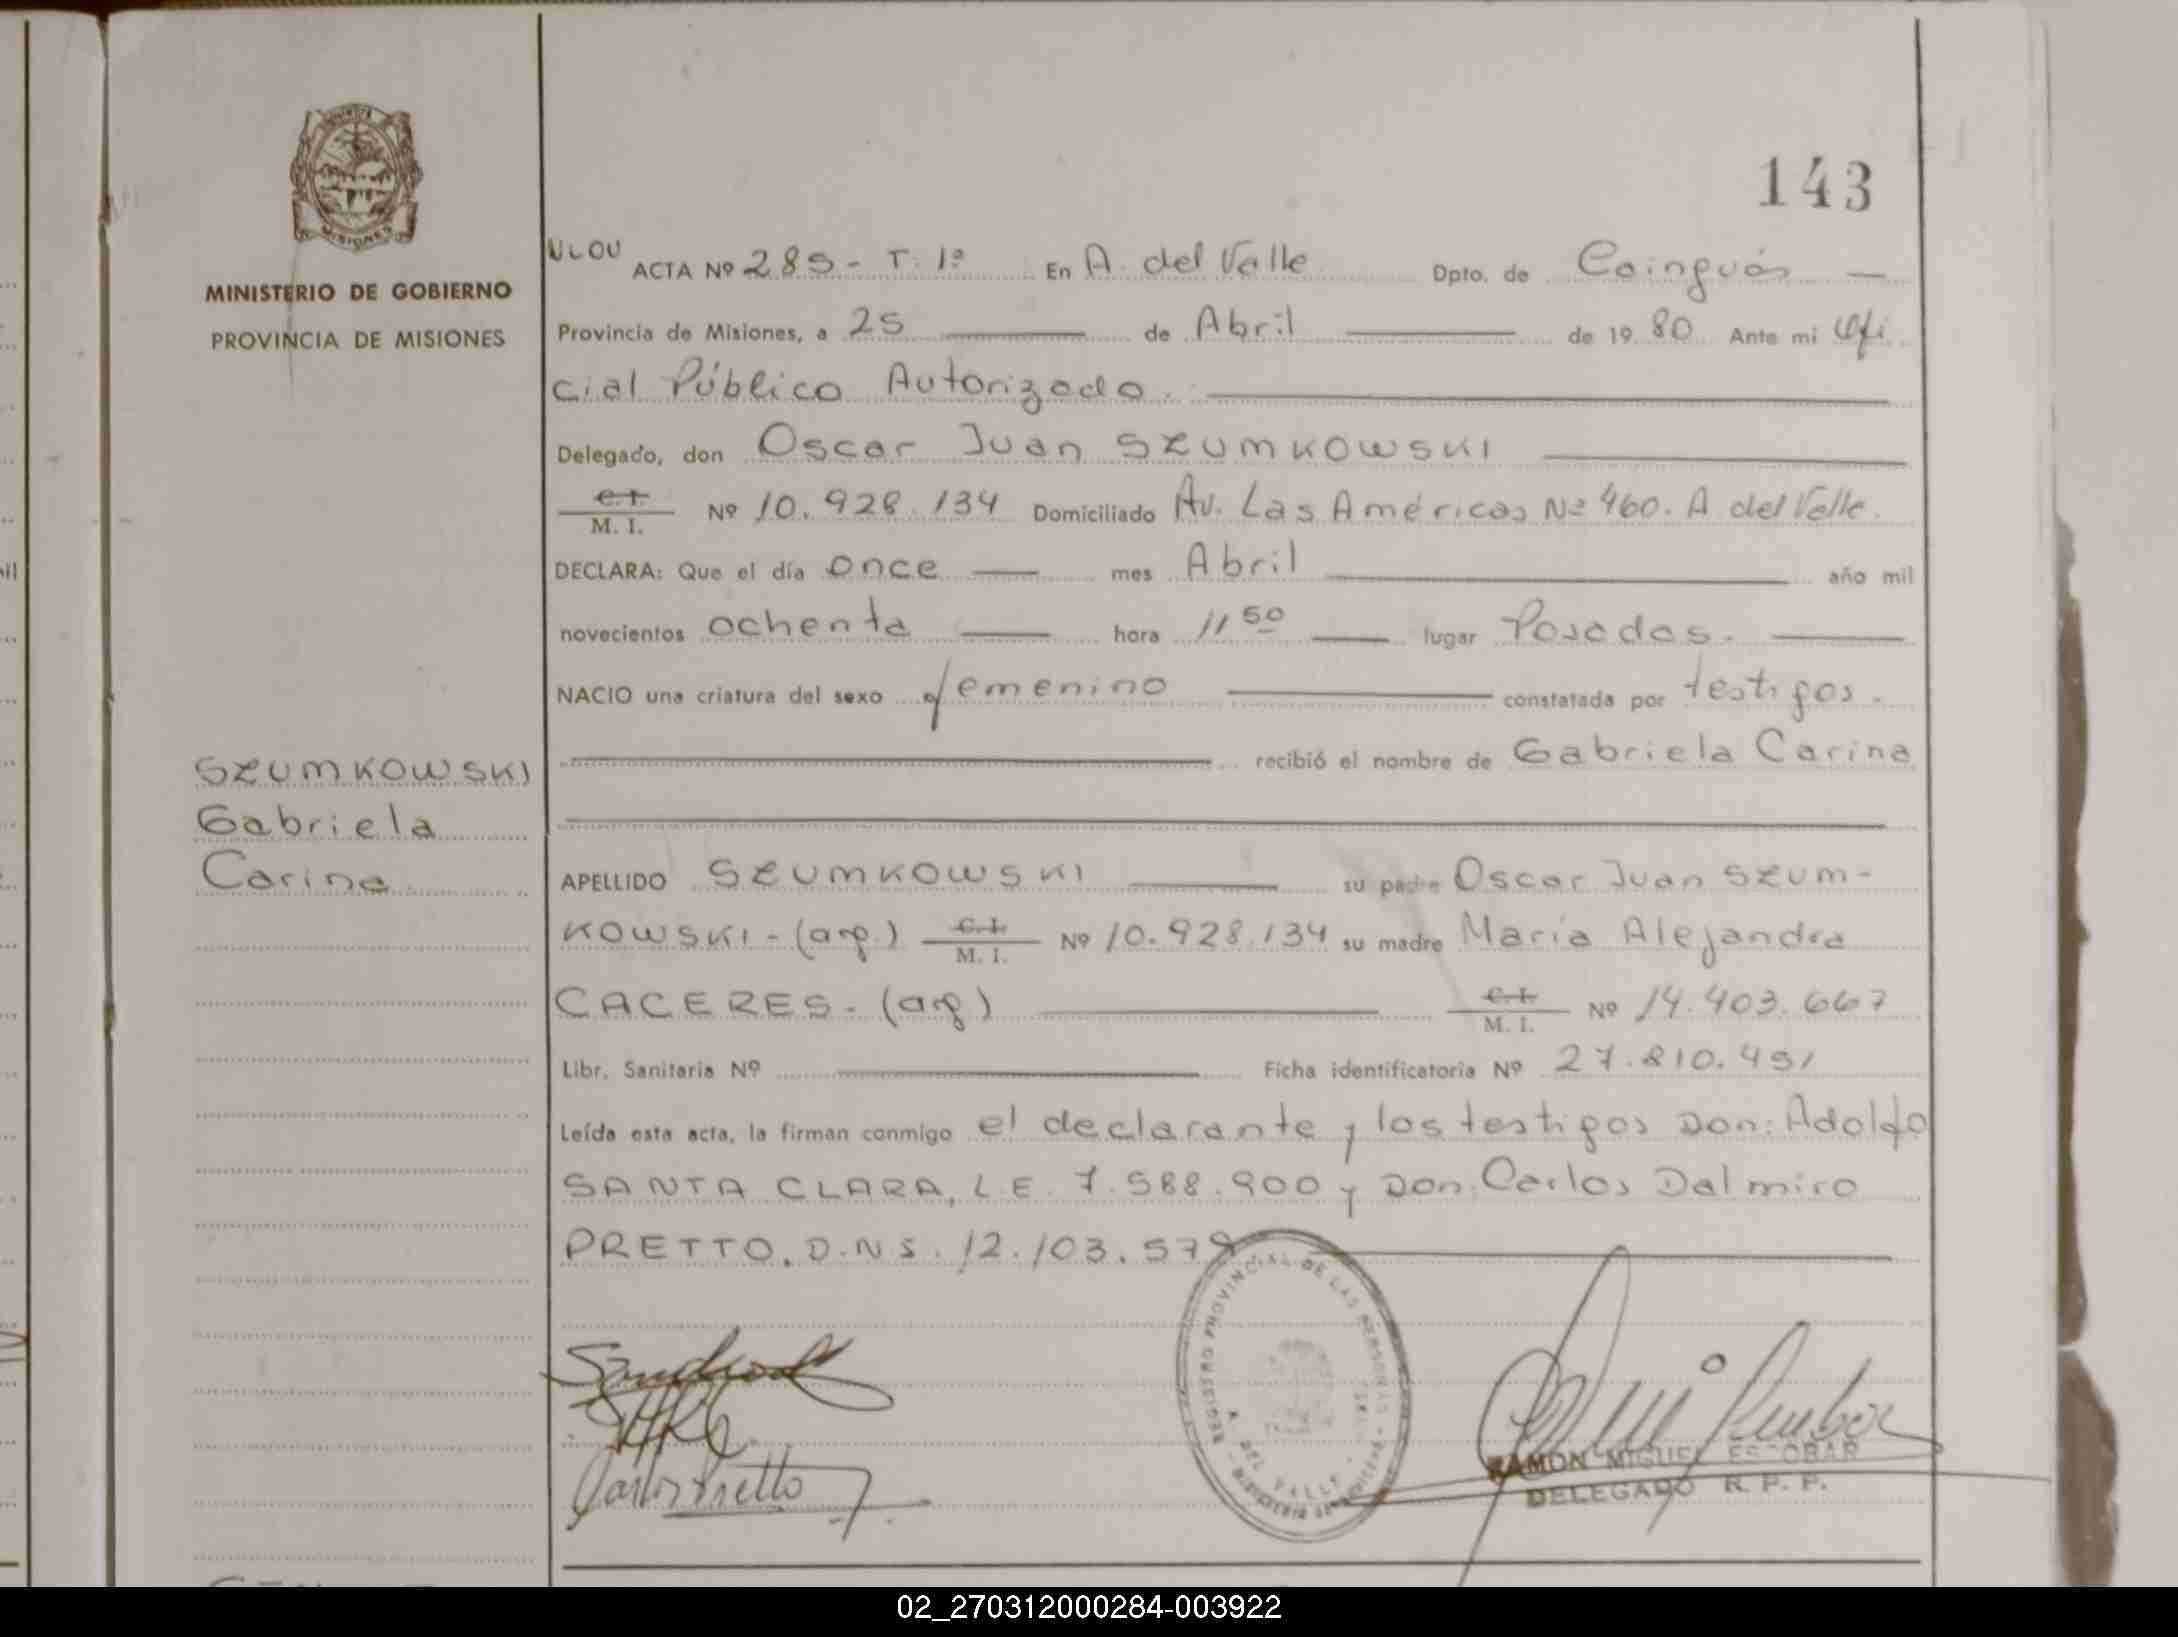 143
MINISTERIO DE GOBIERNO
PROVINCIA DE MISIONES
MISIONES
ACTA Nº 285 - T. 1º En A. del Valle Dpto. de Cainguás —
Provincia de Misiones, a 25 de Abril de 19 80 Ante mi Ofi
cial Público Autorizado.
Delegado, don Oscar Juan SZUMKOWSKI
C. I.
M. I. Nº 10.928.134 Domiciliado Av. Las Américas Nº 460. A del Valle.
DECLARA: Que el día once mes Abril año mil
novecientos ochenta hora 11 50 lugar Posadas.
NACIO una criatura del sexo femenino constatada por testigos.
recibió el nombre de Gabriela Carina
SZUMKOWSKI
Gabriela
Carina
APELLIDO SZUMKOWSKI su padre Oscar Juan SZUM-
KOWSKI - (arg.) C. I. M. I. Nº 10.928.134 su madre María Alejandra
CACERES - (arg) C. I. M. I. Nº 14.403.667
Libr. Sanitaria Nº Ficha identificatoria Nº 27.810.451
Leída esta acta, la firman conmigo el declarante y los testigos Don: Adolfo
SANTA CLARA, L.E. 7.588.900 y Don: Carlos Dalmiro
PRETTO. D.N.I. 12.103.579
REGISTRO PROVINCIAL DE LAS PERSONAS
A. DEL VALLE
RAMON MIGUEL ESCOBAR
DELEGADO R. P. P.
02_270312000284-003922